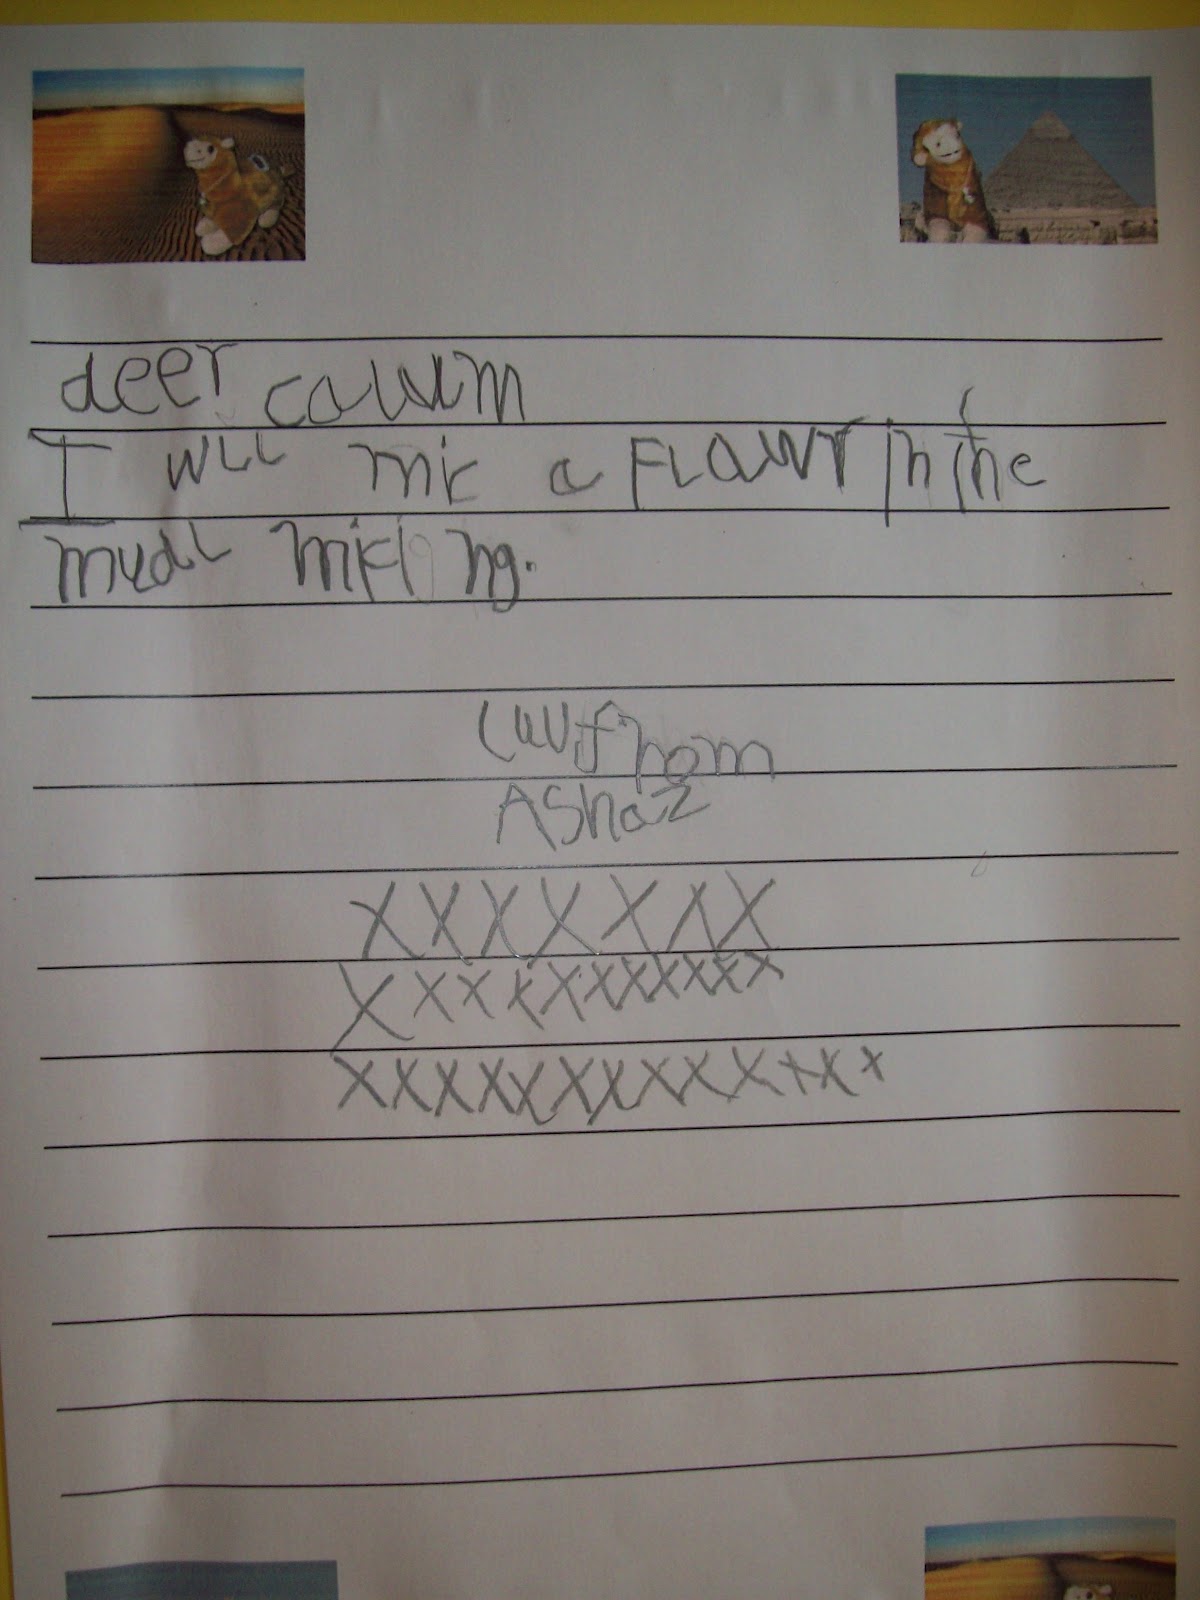 deer cawum
I wll mic a FLawr in the
mudl miking.
luvf from
AShaz
XXXXXXX
XXXXXXXXXXX
XXXXXXXXXXXXX